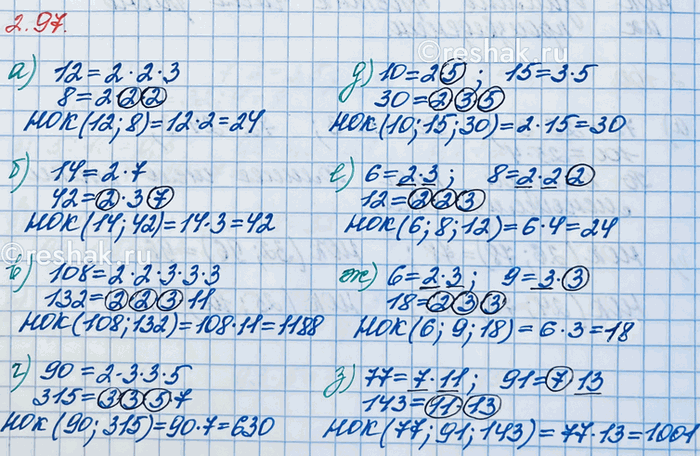 2.97.
а) 12 = 2 · 2 · 3
8 = 2 2 2
НОК(12; 8) = 12 · 2 = 24
б) 14 = 2 · 7
42 = 2 · 3 7
НОК(14; 42) = 14 · 3 = 42
в) 108 = 2 · 2 · 3 · 3 · 3
132 = 2 2 3 11
НОК(108; 132) = 108 · 11 = 1188
г) 90 = 2 · 3 · 3 · 5
315 = 3 3 5 · 7
НОК(90; 315) = 90 · 7 = 630
д) 10 = 2 5 ; 15 = 3 · 5
30 = 2 3 5
НОК(10; 15; 30) = 2 · 15 = 30
е) 6 = 2 · 3 ; 8 = 2 · 2 2
12 = 2 2 3
НОК(6; 8; 12) = 6 · 4 = 24
ж) 6 = 2 · 3 ; 9 = 3 · 3
18 = 2 3 3
НОК(6; 9; 18) = 6 · 3 = 18
з) 77 = 7 · 11 ; 91 = 7 13
143 = 11 · 13
НОК(77; 91; 143) = 77 · 13 = 1001
©reshak.ru
©reshak.ru